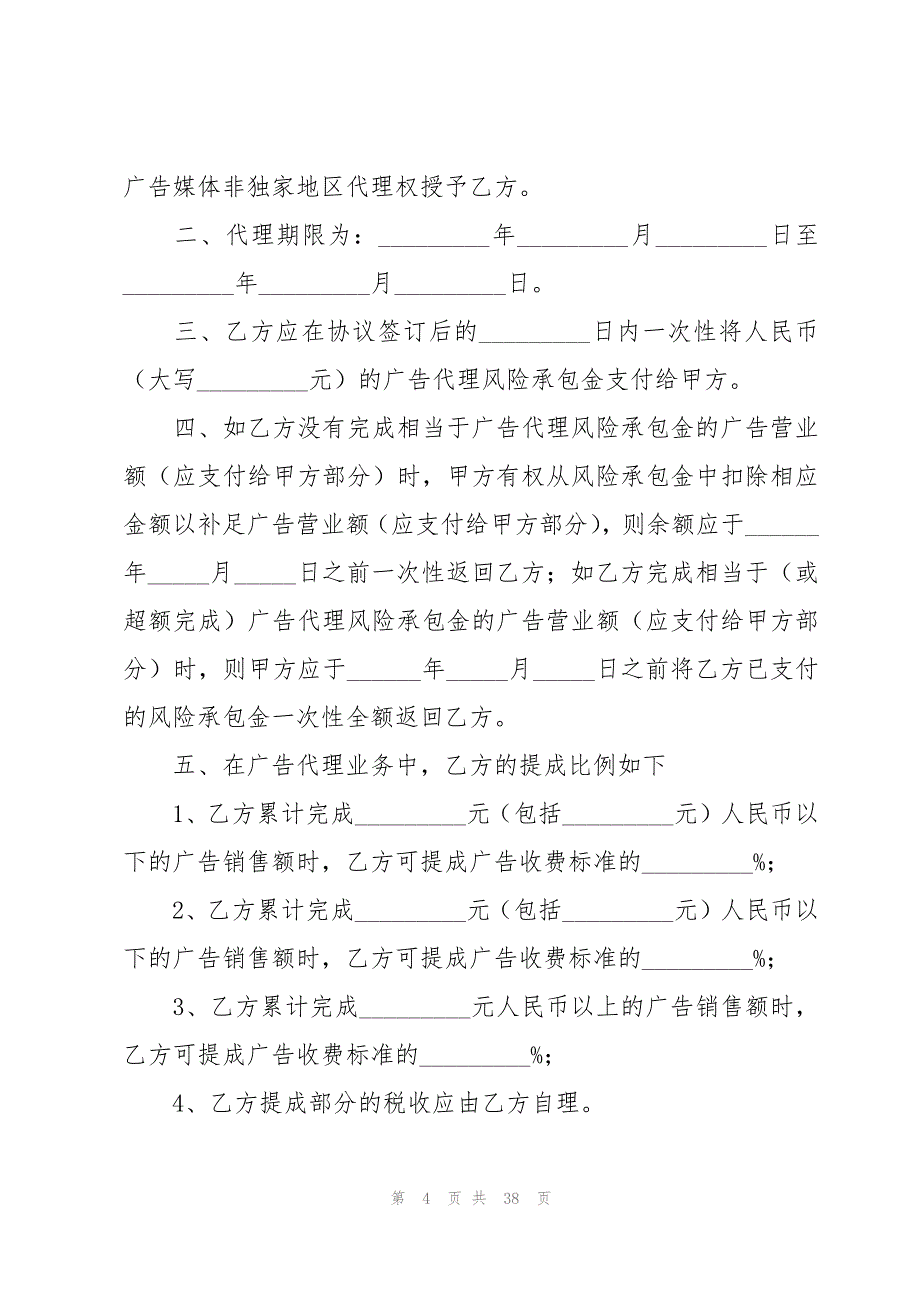 广告媒体非独家地区代理权授予乙方。
二、代理期限为：_________年_________月_________日至
_________年_________月_________日。
三、乙方应在协议签订后的_________日内一次性将人民币
（大写_________元）的广告代理风险承包金支付给甲方。
四、如乙方没有完成相当于广告代理风险承包金的广告营业
额（应支付给甲方部分）时，甲方有权从风险承包金中扣除相应
金额以补足广告营业额（应支付给甲方部分），则余额应于______
年_____月_____日之前一次性返回乙方；如乙方完成相当于（或
超额完成）广告代理风险承包金的广告营业额（应支付给甲方部
分）时，则甲方应于______年_____月_____日之前将乙方已支付
的风险承包金一次性全额返回乙方。
五、在广告代理业务中，乙方的提成比例如下
1、乙方累计完成_________元（包括_________元）人民币以
下的广告销售额时，乙方可提成广告收费标准的_________%；
2、乙方累计完成_________元（包括_________元）人民币以
下的广告销售额时，乙方可提成广告收费标准的_________%；
3、乙方累计完成_________元人民币以上的广告销售额时，
乙方可提成广告收费标准的_________%；
4、乙方提成部分的税收应由乙方自理。
第 4 页 共 38 页